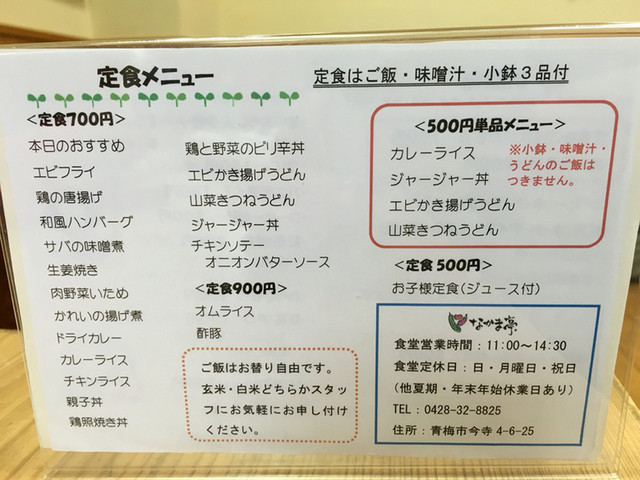 定食メニュー
定食はご飯・味噌汁・小鉢３品付
<定食700円>
本日のおすすめ
エビフライ
鶏の唐揚げ
和風ハンバーグ
サバの味噌煮
生姜焼き
肉野菜いため
かれいの揚げ煮
ドライカレー
カレーライス
チキンライス
親子丼
鶏照焼き丼
鶏と野菜のピリ辛丼
エビかき揚げうどん
山菜きつねうどん
ジャージャー丼
チキンソテー
オニオンバターソース
<定食900円>
オムライス
酢豚
ご飯はお替り自由です。
玄米・白米どちらかスタッ
フにお気軽にお申し付け
ください。
<500円単品メニュー>
カレーライス
ジャージャー丼
エビかき揚げうどん
山菜きつねうどん
※小鉢・味噌汁・
うどんのご飯は
つきません。
<定食500円>
お子様定食(ジュース付)
なかま亭
食堂営業時間：11:00～14:30
食堂定休日：日・月曜日・祝日
(他夏期・年末年始休業日あり)
TEL：0428-32-8825
住所：青梅市今寺 4-6-25